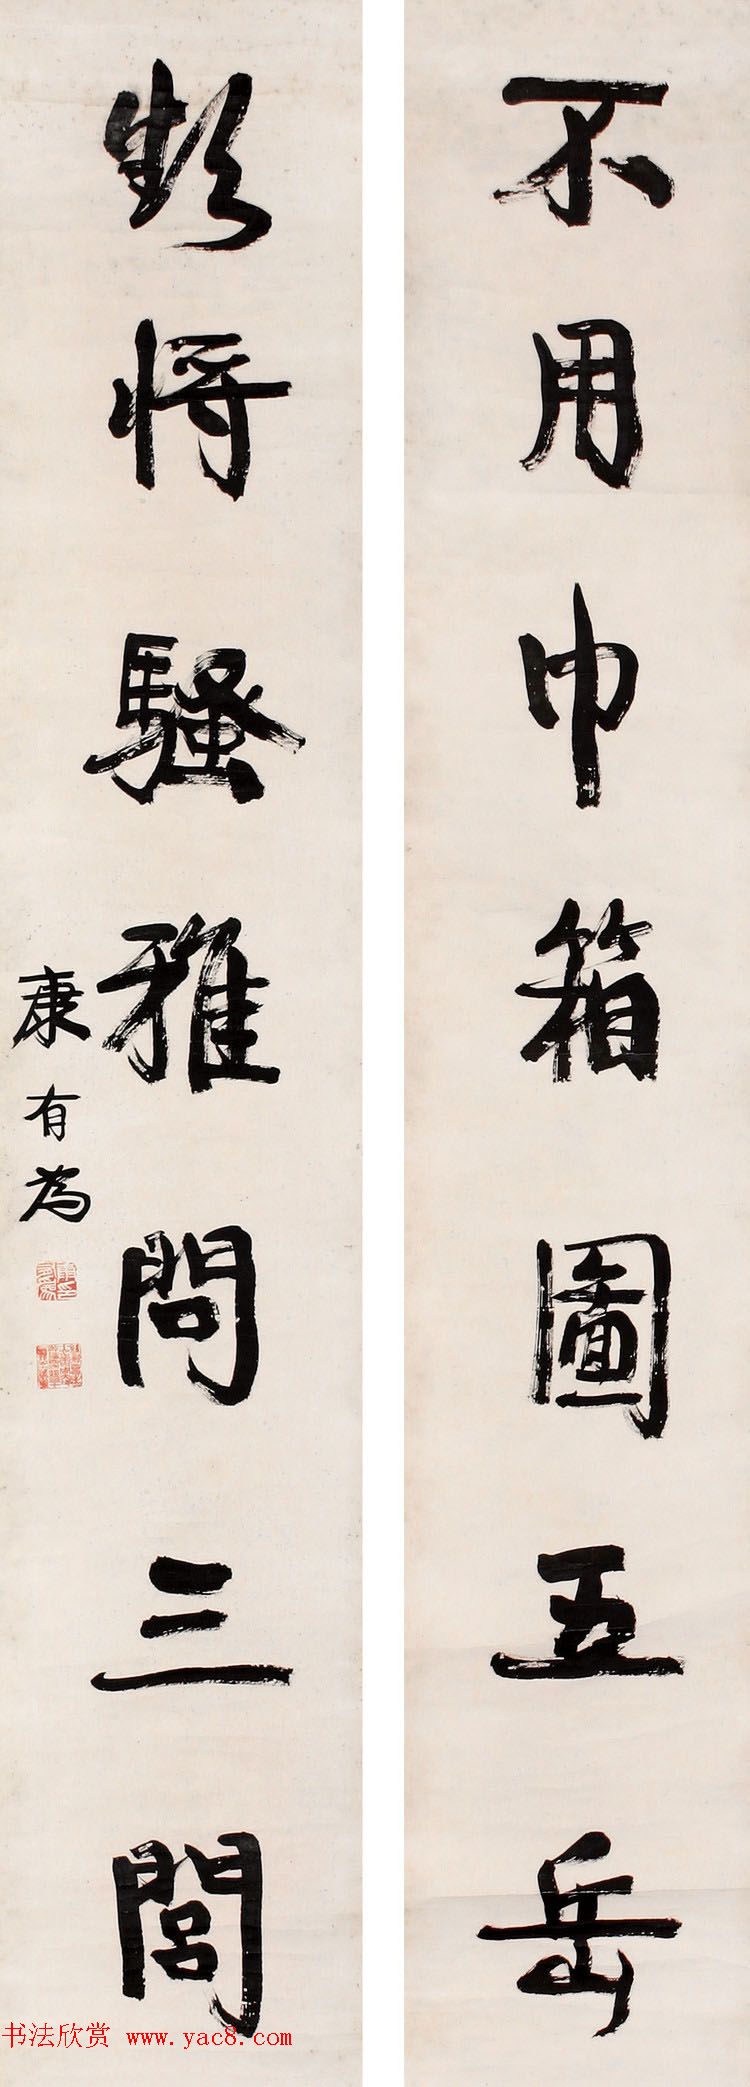 不用巾箱圖五岳
将騷雅問三閭
康有為
书法欣赏 www.yac8.com